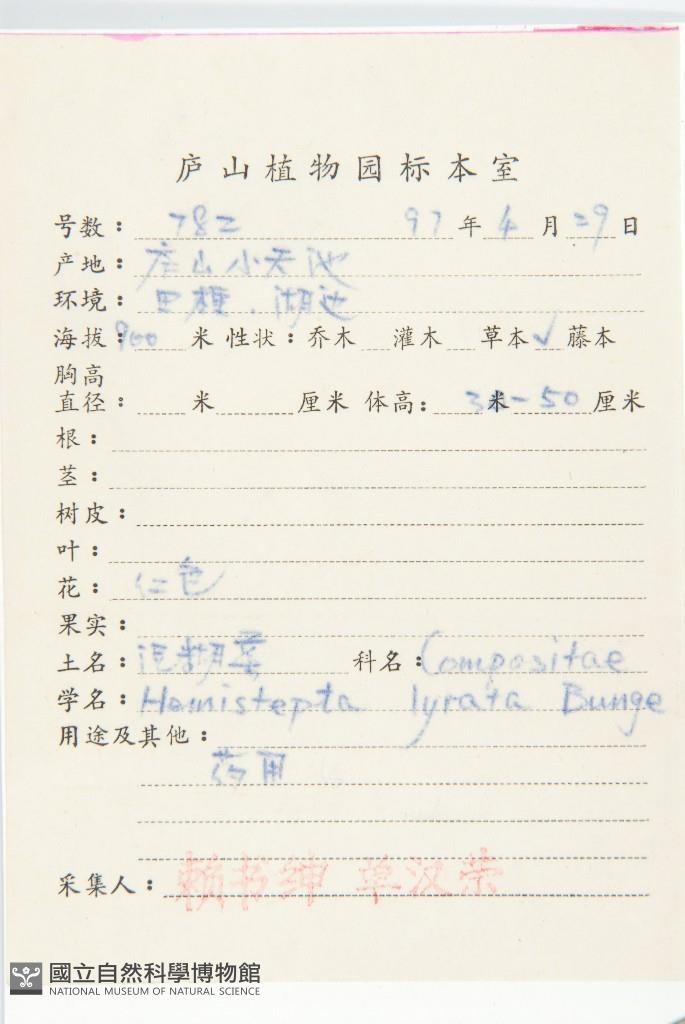 庐山植物园标本室
号数： 782 97 年 4 月 29 日
产地： 庐山小天池
环境： 田埂，湖边
海拔： 900 米 性状： 乔木 灌木 草本 ✓ 藤本
胸高
直径： 米 厘米 体高： 米 - 50 厘米
根：
茎：
树皮：
叶：
花： 红色
果实：
土名： 泥糊菜 科名： Compositae
学名： Hemistepta lyrata Bunge
用途及其他：
药用
采集人： 赖书绅 单汉荣
國立自然科學博物館
NATIONAL MUSEUM OF NATURAL SCIENCE